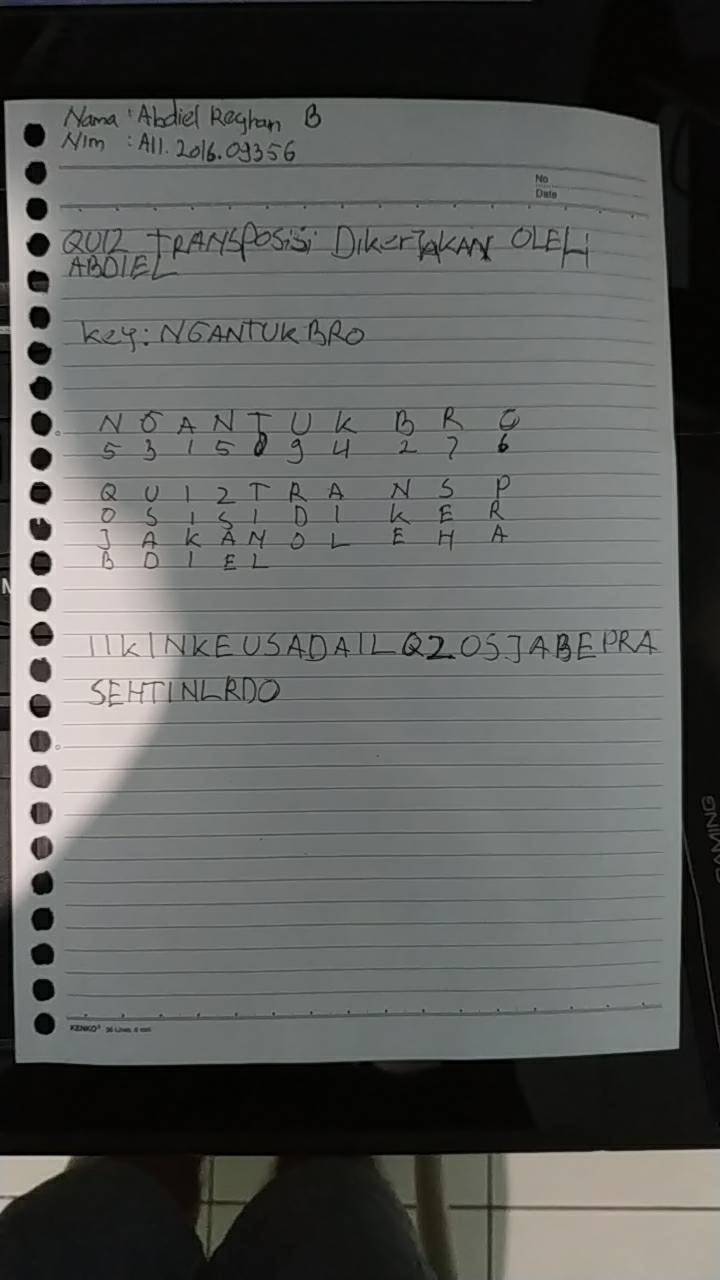 Nama : Abdiel Reghan B
Nim : A11.2016.09356
No
Date
QUIZ TRANSPOSISI DikerJAKAN OLEH
ABDIEL
key : NGANTUKBRO
N G A N T U K B R O
5 3 1 5 8 9 4 2 7 6
Q U I Z T R A N S P
O S I S I D I K E R
J A K A N O L E H A
B D I E L
IIKINKEUSADAILQZOSJABEPRA
SEHTINLRDO
KENKO
GAMING